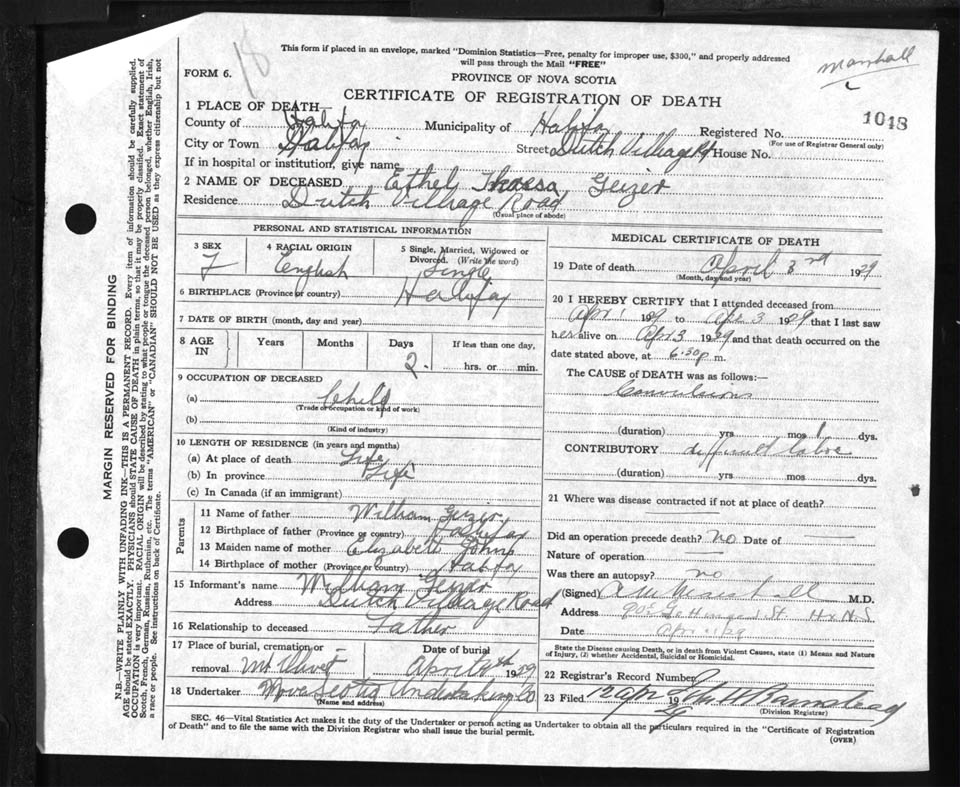 18
This form if placed in an envelope, marked "Dominion Statistics—Free, penalty for improper use, $300," and properly addressed
will pass through the Mail "FREE"
Marshall
FORM 6.
PROVINCE OF NOVA SCOTIA
CERTIFICATE OF REGISTRATION OF DEATH
1048
1 PLACE OF DEATH—
County of Halifax Municipality of Halifax Registered No.
(For use of Registrar General only)
City or Town Halifax Street Dutch Village Rd House No.
If in hospital or institution, give name
2 NAME OF DECEASED Ethel Theresa Geizer
Residence Dutch Village Road
(Usual place of abode)
PERSONAL AND STATISTICAL INFORMATION
3 SEX
F
4 RACIAL ORIGIN
English
5 Single, Married, Widowed or
Divorced. (Write the word)
Single
6 BIRTHPLACE (Province or country) Halifax
7 DATE OF BIRTH (month, day and year)
8 AGE
IN
Years Months Days If less than one day,
2 hrs. or min.
9 OCCUPATION OF DECEASED
(a) Child
(Trade or occupation or kind of work)
(b)
(Kind of industry)
10 LENGTH OF RESIDENCE (in years and months)
(a) At place of death Life
(b) In province Life
(c) In Canada (if an immigrant)
Parents
11 Name of father William Geizer
12 Birthplace of father (Province or country) Halifax
13 Maiden name of mother Elizabeth
14 Birthplace of mother (Province or country) Halifax
15 Informant's name William Geizer
Address Dutch Village Road
16 Relationship to deceased Father
17 Place of burial, cremation or
removal Mt Olivet
Date of burial
April 4th 1929
18 Undertaker Nova Scotia Undertaking Co
(Name and address)
MEDICAL CERTIFICATE OF DEATH
19 Date of death April 3rd 1929
(Month, day and year)
20 I HEREBY CERTIFY that I attended deceased from
Apr 1 1929 to Apr 3 1929 that I last saw
her alive on Apr 3 1929 and that death occurred on the
date stated above, at 6.30 p m.
The CAUSE OF DEATH was as follows:—
Convulsions
(duration) yrs mos 1 dys.
CONTRIBUTORY difficult labor
(duration) yrs. mos. dys.
21 Where was disease contracted if not at place of death?
Did an operation precede death? no Date of
Nature of operation —
Was there an autopsy? no
(Signed) A M Marshall M.D.
Address Gottingen St. Hx N.S.
Date Apr 29
State the Disease causing Death, or in death from Violent Causes, state (1) Means and Nature
of Injury, (2) whether Accidental, Suicidal or Homicidal.
22 Registrar's Record Number
23 Filed 12 Apr 1929
(Division Registrar)
SEC. 46—Vital Statistics Act makes it the duty of the Undertaker or person acting as Undertaker to obtain all the particulars required in the "Certificate of Registration
of Death" and to file the same with the Division Registrar who shall issue the burial permit.
(OVER)
MARGIN RESERVED FOR BINDING
N.B.—WRITE PLAINLY WITH UNFADING INK—THIS IS A PERMANENT RECORD. Every item of information should be carefully supplied.
AGE should be stated EXACTLY. PHYSICIANS should STATE CAUSE OF DEATH in plain terms, so that it may be properly classified. Exact statement of
OCCUPATION is very important. RACIAL ORIGIN will be described by stating to what people or tongue the deceased person belonged, whether English, Irish,
Scotch, French, German, Russian, Ruthenian, etc. The terms "AMERICAN" or "CANADIAN" SHOULD NOT BE USED as they express citizenship but not
a race or people. See instructions on back of Certificate.